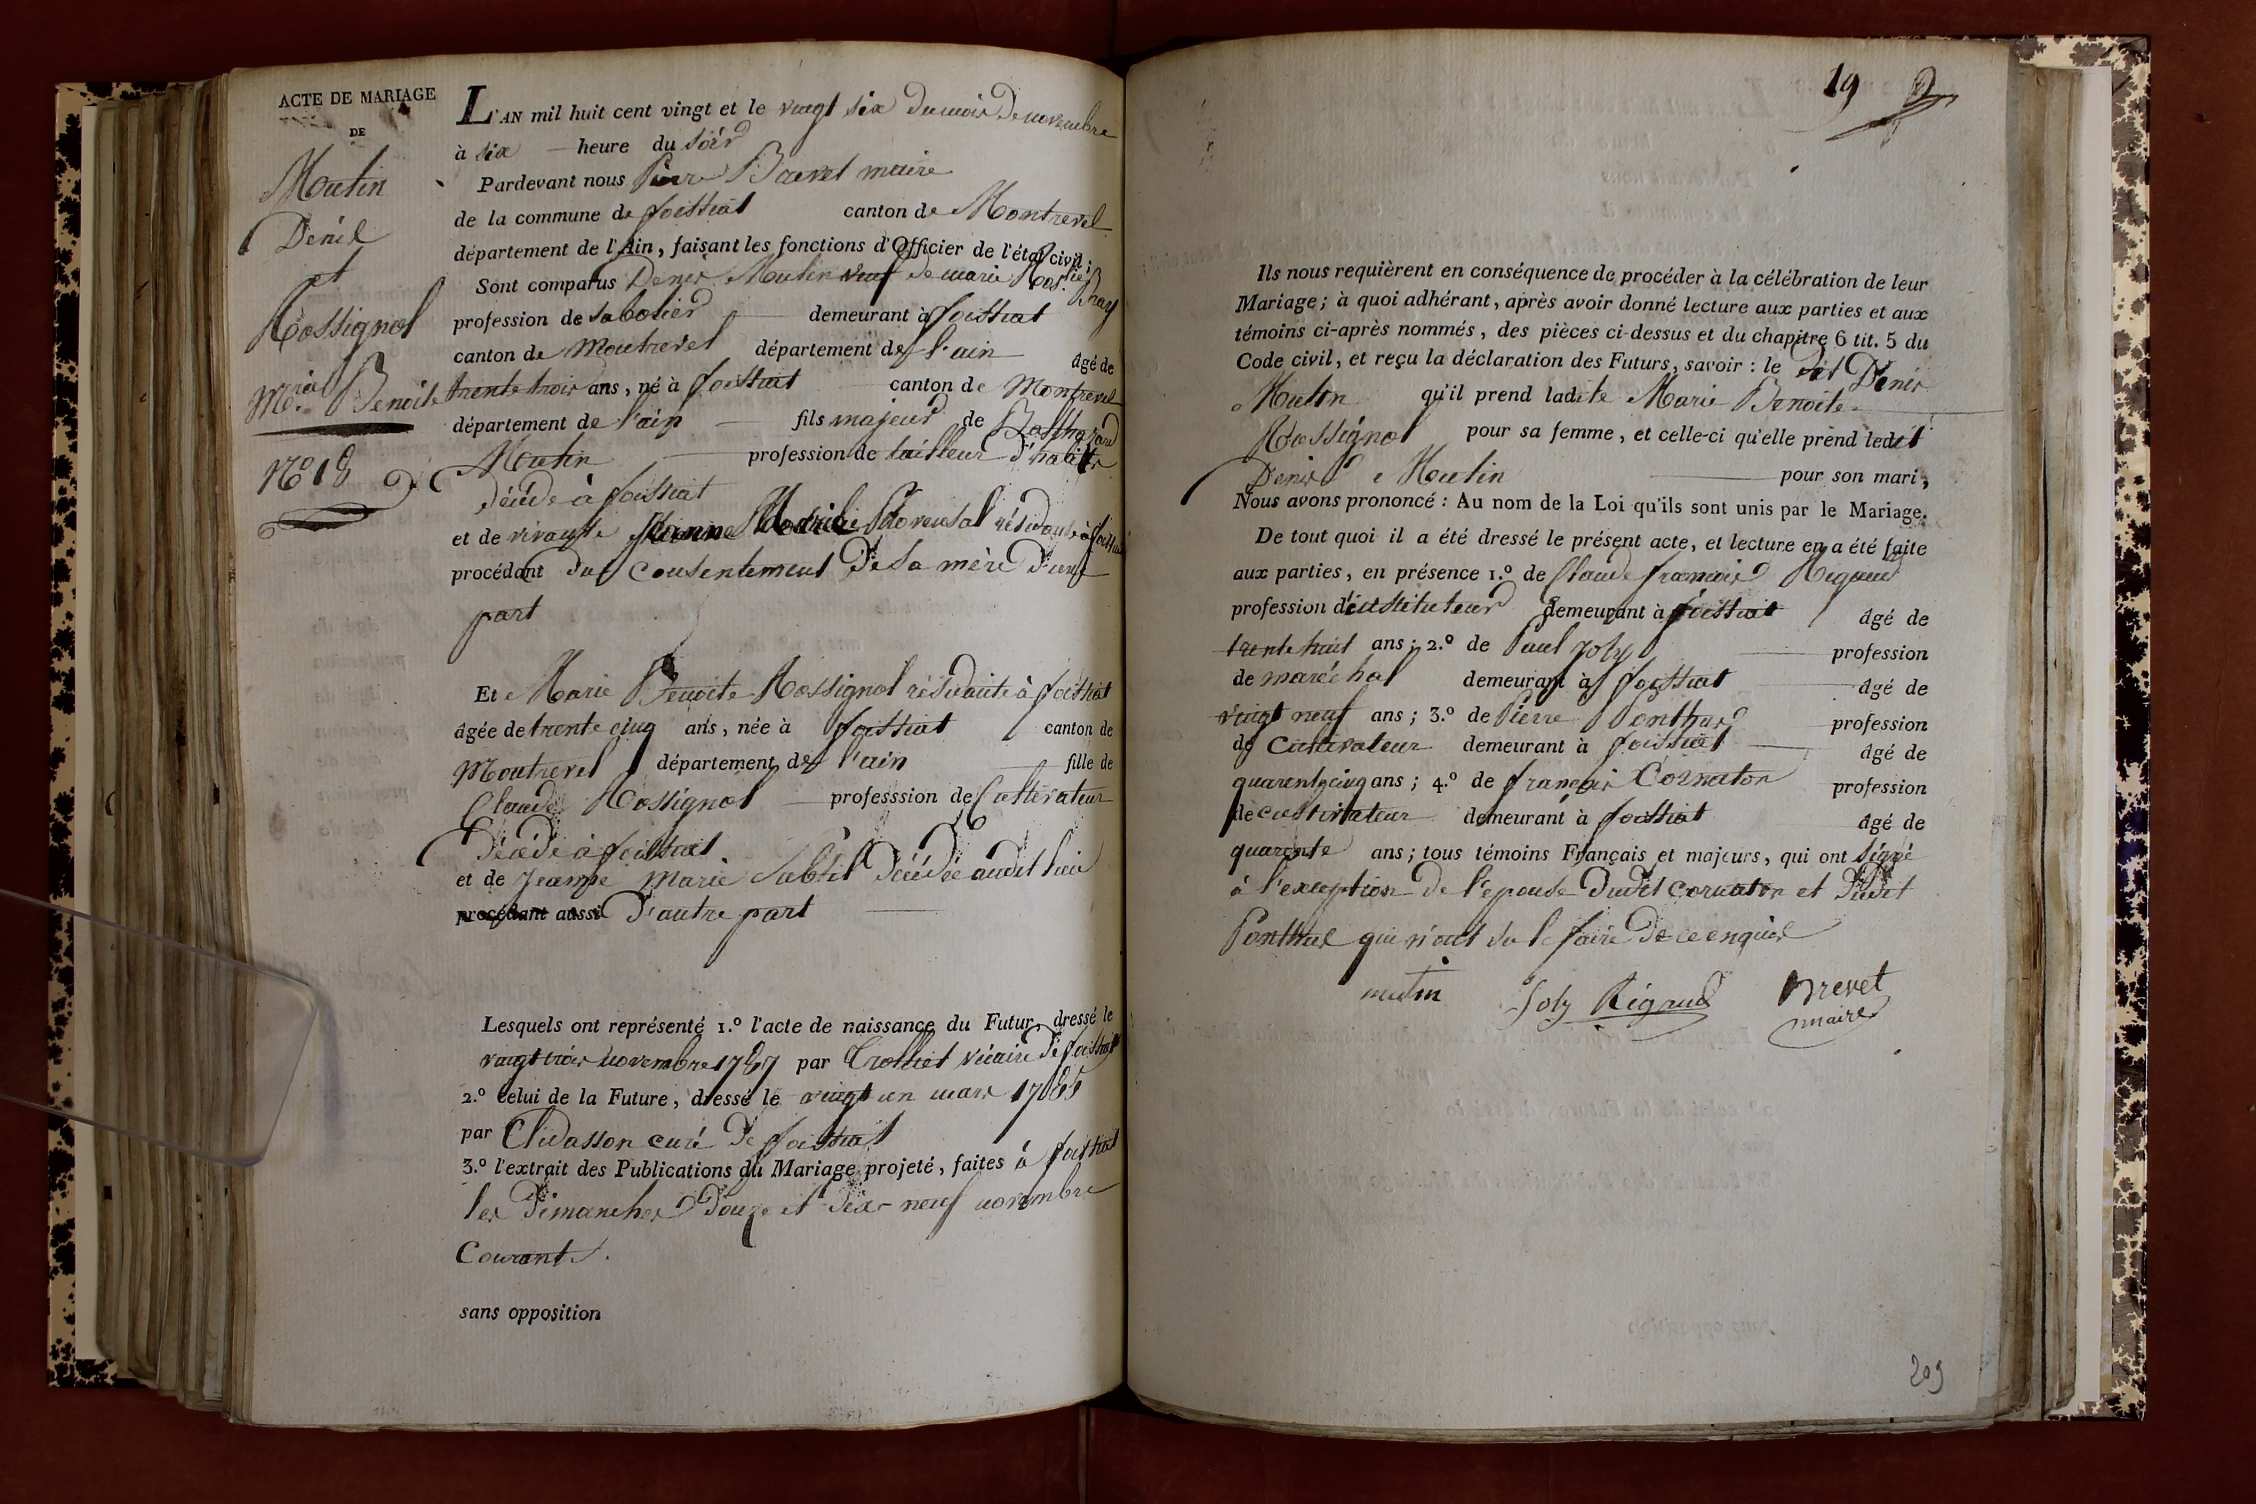 ACTE DE MARIAGE
DE
Moutin
Denis
et
Rossignol
M.rie Benoite
N.º 18
L'AN mil huit cent vingt et le vingt six du mois de novembre
à six heure du soir
Pardevant nous Pierre Brevet maire
de la commune de foissiat canton de Montrevel
département de l'Ain, faisant les fonctions d'Officier de l'état civil;
Sont comparus Denis Moutin veuf de marie Bray
profession de sabotier demeurant à foissiat
canton de montrevel département de l'ain âgé de
trente trois ans, né à foissiat canton de Montrevel
département de l'ain fils majeur de
Moutin profession de tailleur d'habits
décédé à foissiat
et de vivante résidante à foissiat
procédant du consentement de sa mère d'une
part
Et Marie Benoite Rossignol résidante à foissiat
âgée de trente cinq ans, née à foissiat canton de
Montrevel département de l'ain fille de
Claude Rossignol professsion de Cultivateur
décédé à foissiat
et de Jeanne Marie Subtil décédée audit lieu
procédant aussi d'autre part
Lesquels ont représenté 1.º l'acte de naissance du Futur, dressé le
vingt trois novembre 1787 par vicaire de foissiat
2.º Celui de la Future, dressé le vingt un mars 1785
par curé de foissiat
3.º l'extrait des Publications du Mariage projeté, faites à foissiat
les dimanches douze et dix-neuf novembre
Courant
sans opposition
19
Ils nous requièrent en conséquence de procéder à la célébration de leur
Mariage; à quoi adhérant, après avoir donné lecture aux parties et aux
témoins ci-après nommés, des pièces ci-dessus et du chapitre 6 tit. 5 du
Code civil, et reçu la déclaration des Futurs, savoir: le dit Denis
Moutin qu'il prend ladite Marie Benoite
Rossignol pour sa femme, et celle-ci qu'elle prend ledit
Denis Moutin pour son mari,
Nous avons prononcé: Au nom de la Loi qu'ils sont unis par le Mariage.
De tout quoi il a été dressé le présent acte, et lecture en a été faite
aux parties, en présence 1.º de Claude françois Rigaud
profession d'instituteur demeurant à foissiat âgé de
trente huit ans; 2.º de Paul Joly profession
de maréchal demeurant à foissiat âgé de
vingt neuf ans; 3.º de Pierre Ponthus profession
de Cultivateur demeurant à foissiat âgé de
quarente cinq ans; 4.º de françois Cornaton profession
de cultivateur demeurant à foissiat âgé de
quarente ans; tous témoins Français et majeurs, qui ont signé
à l'exception de l'epouse dudit cornaton et dudit
Ponthus qui n'ont su le faire de ce enquis
mutin Joly Rigaud Brevet
maire
209